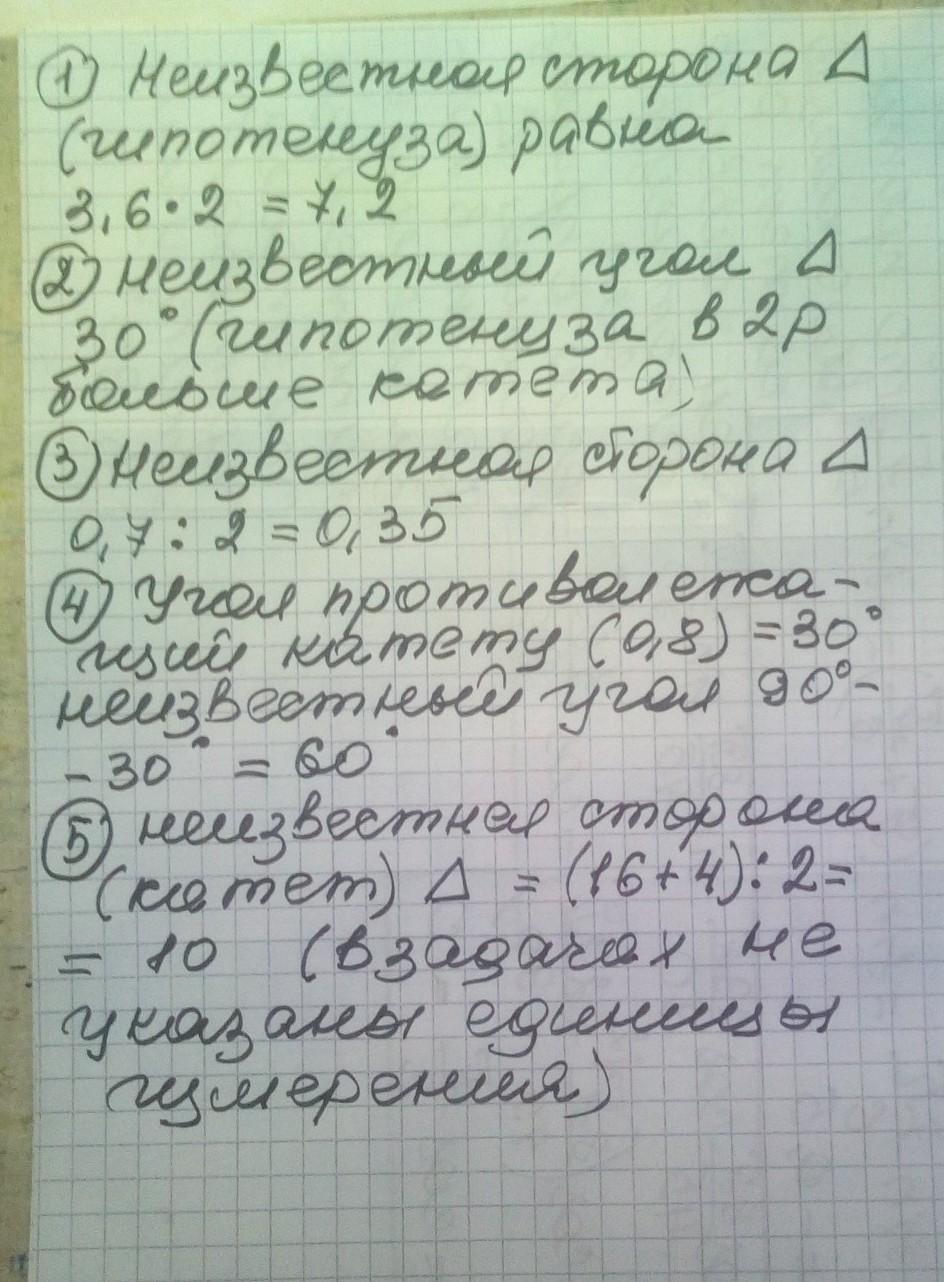 ① Неизвестная сторона Δ
(гипотенуза) равна
3,6 · 2 = 7,2
② неизвестный угол Δ
30° (гипотенуза в 2р
больше катета)
③ Неизвестная сторона Δ
0,7 : 2 = 0,35
④ Угол противолежа-
щий катету (0,8) = 30°
неизвестный угол 90° -
- 30° = 60°
⑤ неизвестная сторона
(катет) Δ = (16+4) : 2 =
= 10 (в задачах не
указаны единицы
измерения)